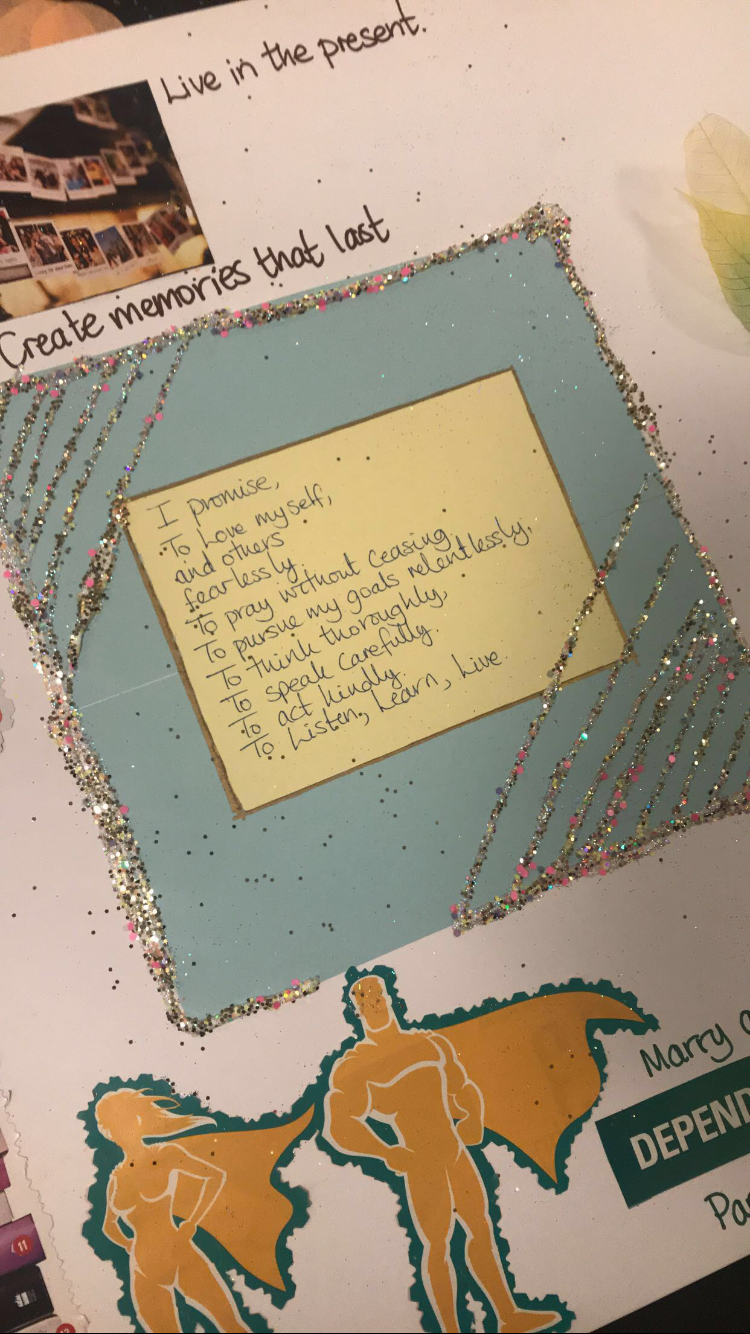 Live in the present.
Create memories that last
I promise,
To Love myself,
and others
fearlessly.
To pray without ceasing.
To pursue my goals relentlessly,
To think thoroughly,
To speak carefully.
To act kindly.
To Listen, Learn, Live.
Marry
DEPEND
11